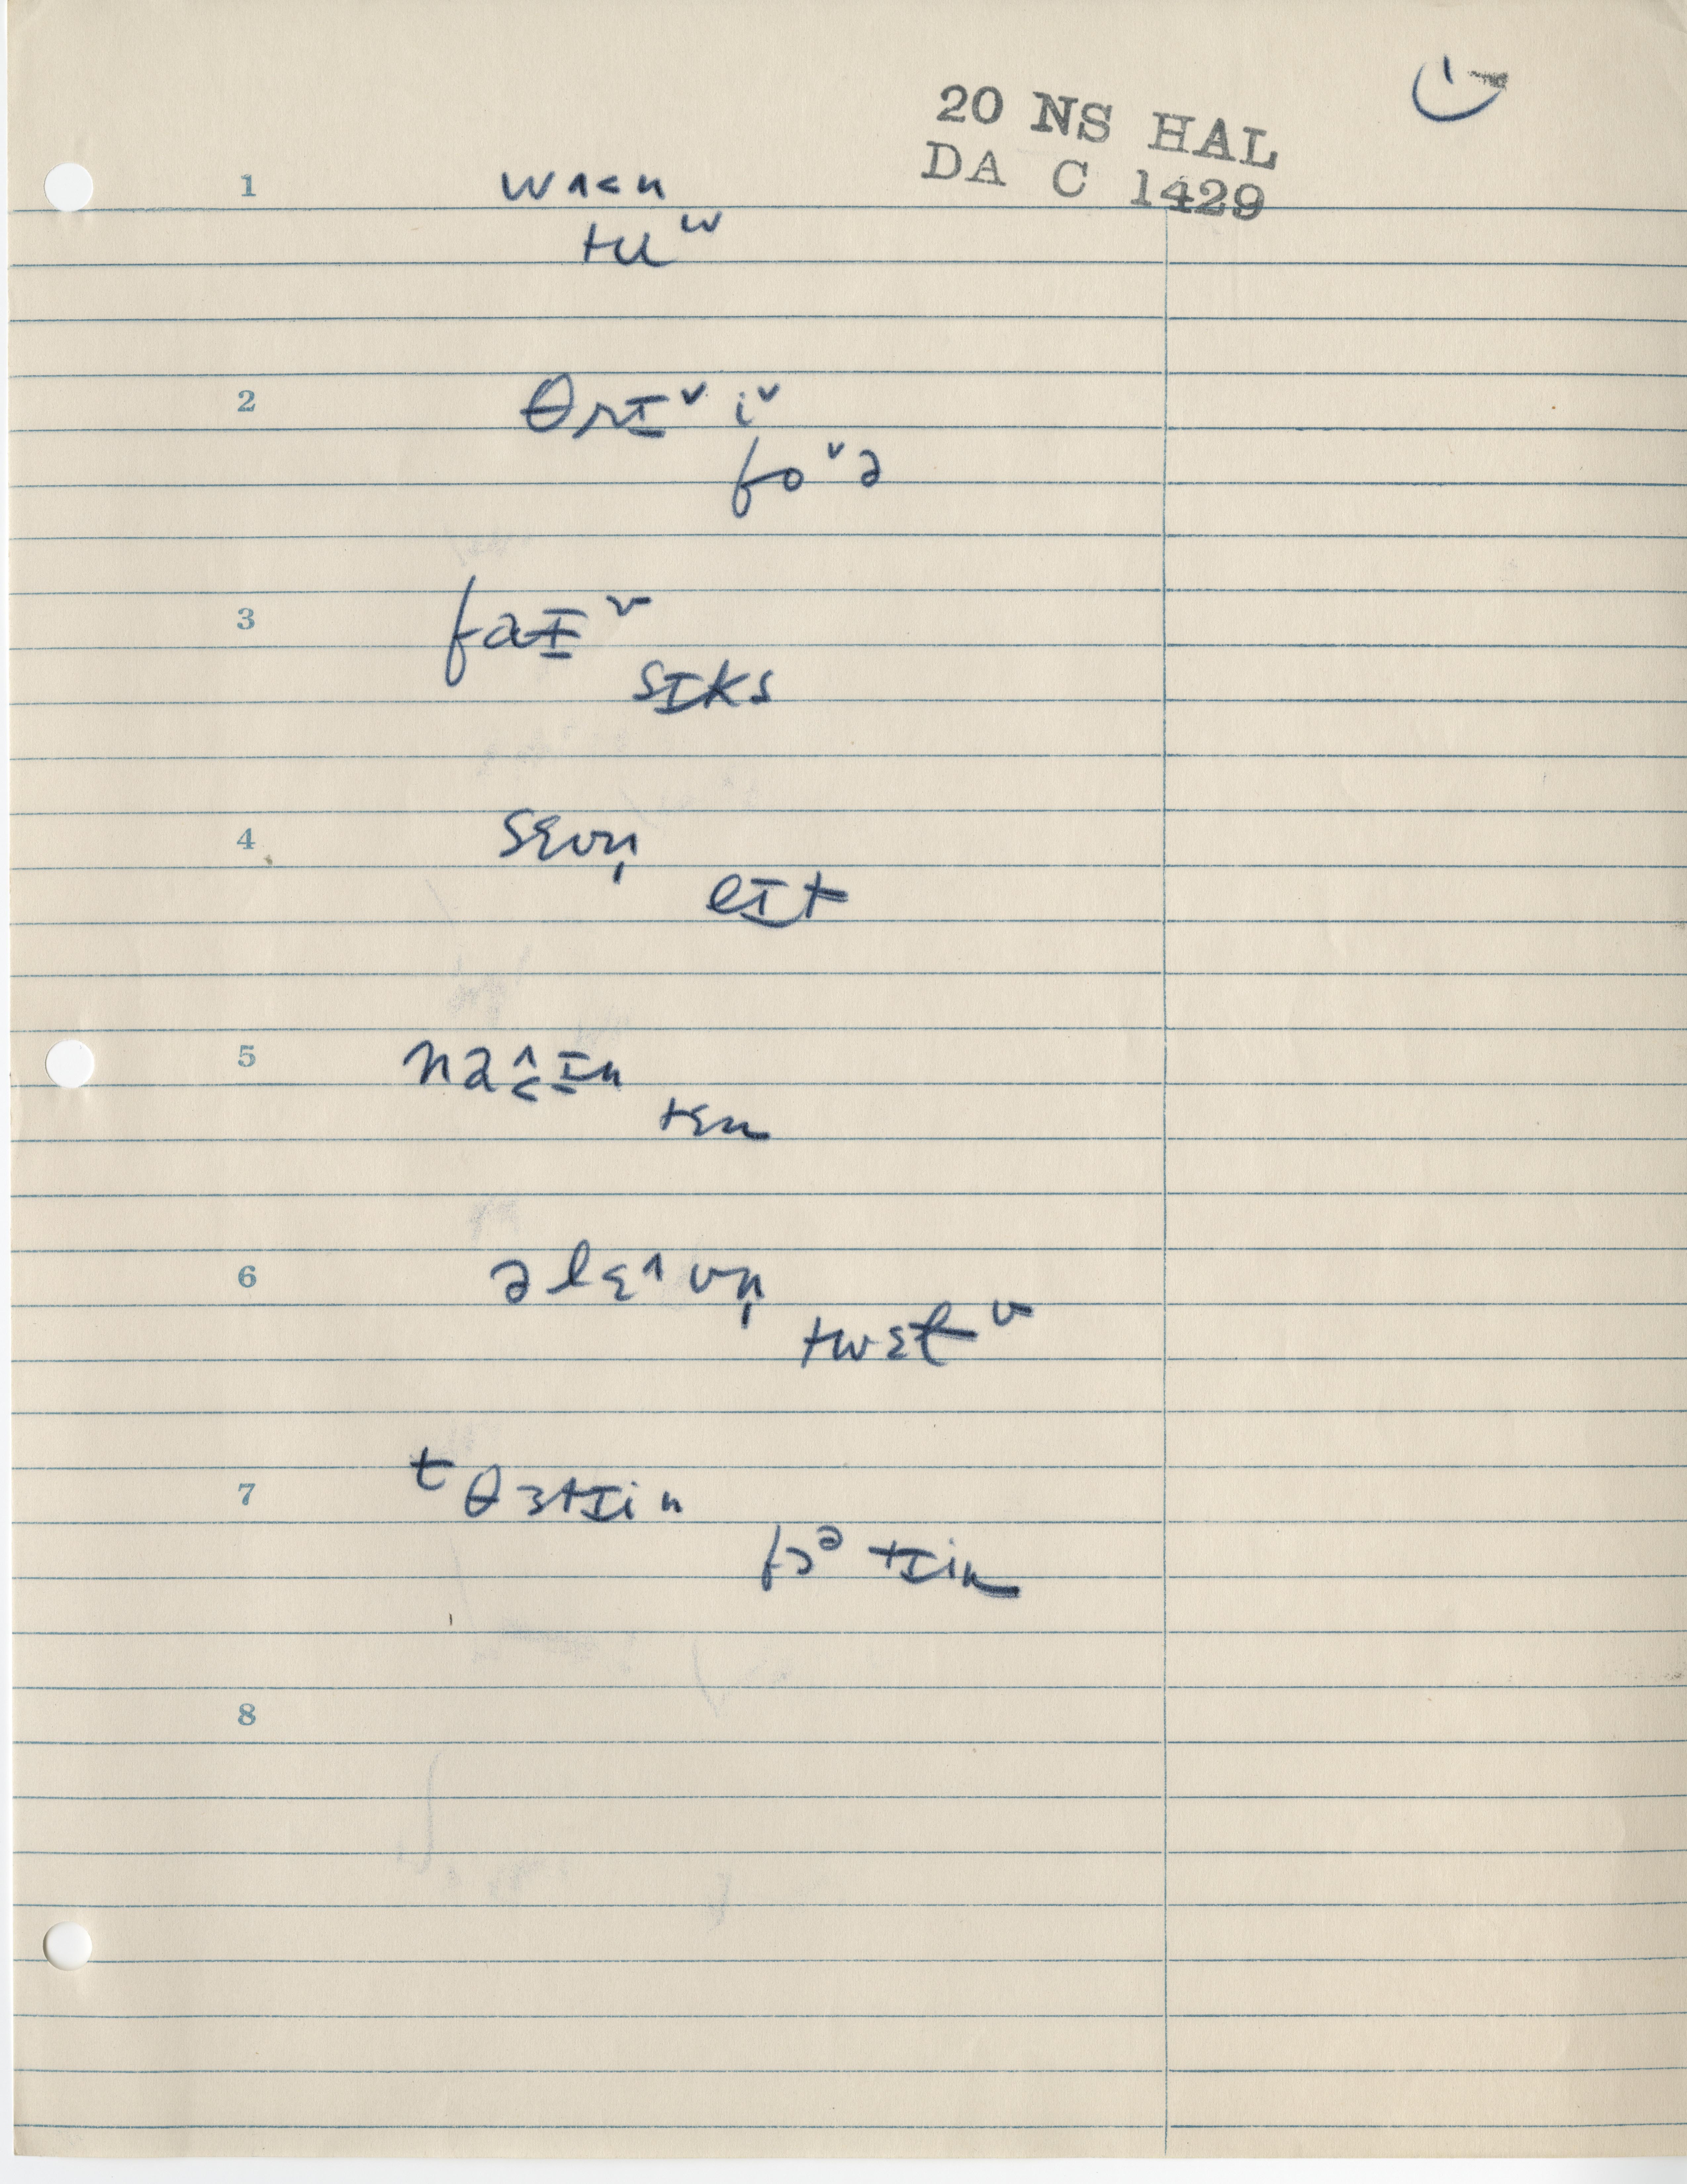 20 NS HAL
DA C 1429
1 wʌ<n
tu ʷ
2 θrɪ ˅ i ˅
fo ˅ ə
3 faɪ v
sɪks
4 sɛvn̩
eɪt
5 naɪn
tɛn
6 əlɛ^vn̩
twɛl v
7 t θɜtɪin
fɔᵊ tɪin
8